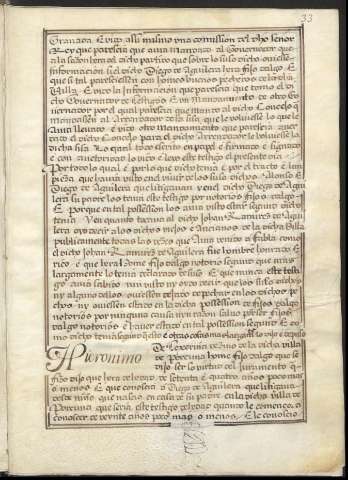 33
Granada E vido assi mismo una comission del dho señor
Rey que paresçia que avia Mandado al Governador que
a la sazon hera del dicho partido que sobre lo suso dicho oviesse
informacion si el dicho Diego de Aguilera hera fijo dalgo E
que si tal paresçiesse con honbres buenos pecheros de la dicha
Villa E vido la Informaçion que paresçia que tomo el di
cho Governador de testigos E un Mandamiento de otro Go
vernador por el qual paresçia que mando al dicho Conçejo q
mandassen al Arrendador de la sisa que le volviesse lo que le
Avia llevado E vido otro Mandamiento que paresçia aver
dado el dicho Conçejo para el dicho Arrendador le volviesse la
dicha sisa Lo qual todo escrito en papel e firmado e signado
e con auctoridad lo vido e leyo este testigo el presente dia
Por todo lo qual e por lo que dicho tenia e por el tracto e lim
pieça que havia visto en el vivir de los suso dichos Alonso E
Diego de Aguilera que litigavan y en el dicho Diego de Agui
lera su padre los tenia este testigo por notorios fijos dalgo
E porque en tal possession los avia visto estar segund dicho
tenia Y en quanto tocava al dicho Johan Ramirez de Agui
lera oyo dezir a los dichos viejos e Ançianos de la dicha Villa
publicamente todas las vezes que avia venido a fabla como
el dicho Johan Ramirez de Aguilera fue honbre honrrado E
rico e que hera home fijo dalgo notorio segund que mas
largamente lo tenia declarado de suso E que nunca este testi
go avia sabido nin visto ny oydo dezir que los suso dichos
ny alguno dellos oviessen dexado de pechar en los dichos pe
chos ny oviessen estado en la dicha possession de fijos dalgo
notorios por ninguna causa ny razon salvo por ser fijos
dalgo notorios e haver estado en tal possession segund E co
mo dicho tenia segund questo e otras cosas mas largamente lo dixo e depuso
Hieronimo De Porcuna vezino de la dicha villa
de Porcuna home fijo dalgo que se
dijo ser so virtud del juramento q
fizo dijo que hera de hedad de setenta e quatro años poco mas
o menos E que conosçia a Diego de Aguilera que litigava
desde niño que nasçio en casa de su padre en la dicha villa de
Porcuna que seria este testigo de hedad quando le començo a
conosçer de veynte años poco mas o menos E le conosçio